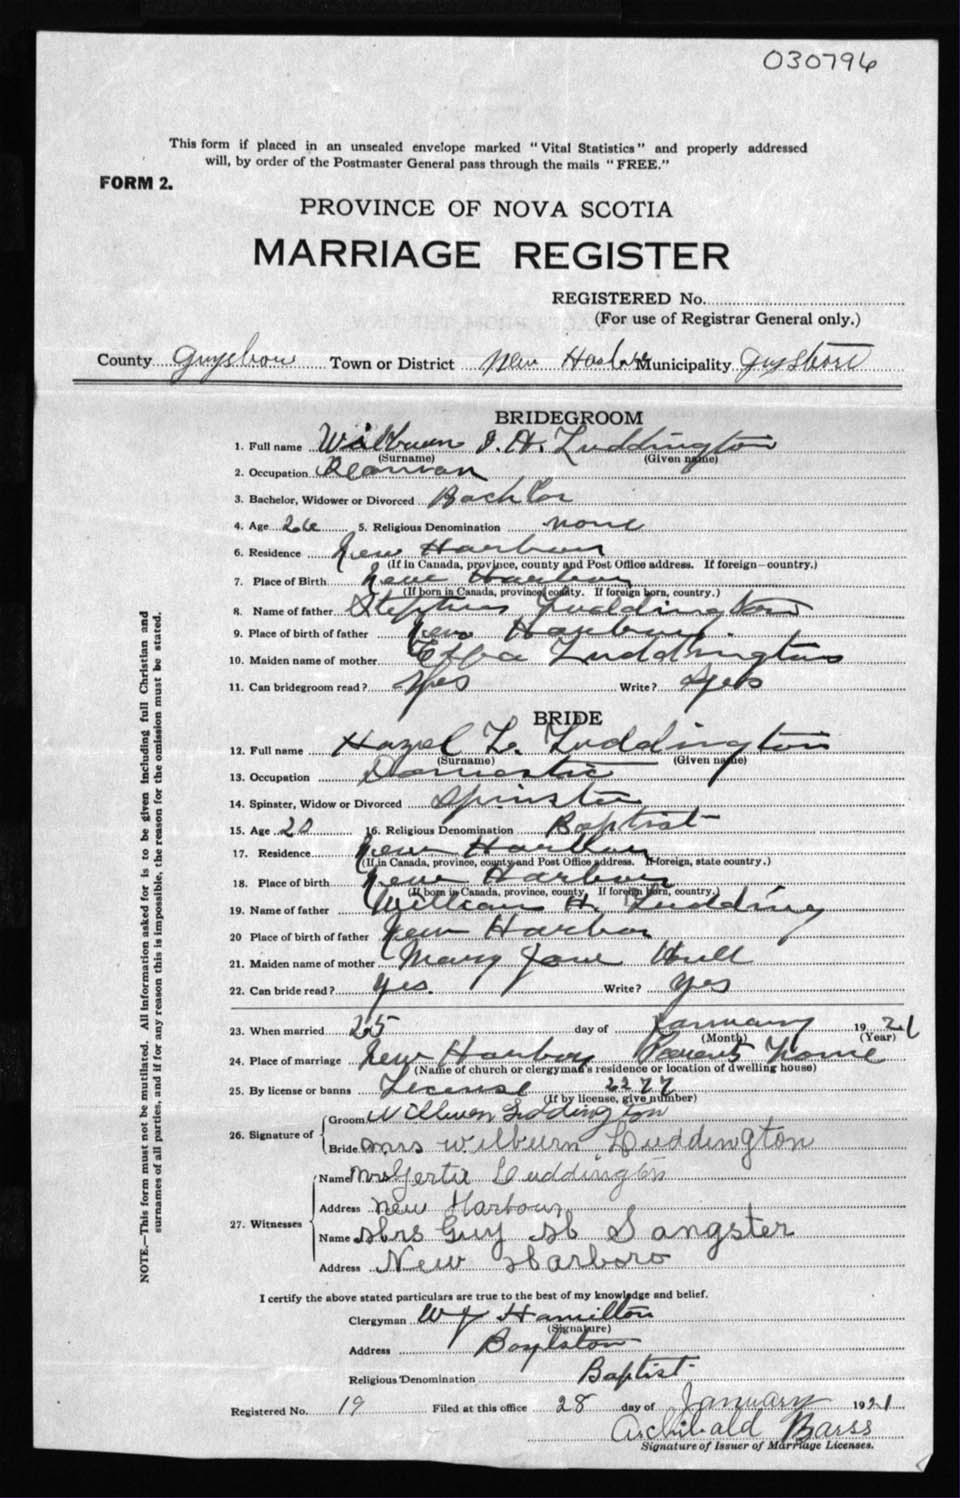 030796
This form if placed in an unsealed envelope marked "Vital Statistics" and properly addressed
will, by order of the Postmaster General pass through the mails "FREE."
FORM 2.
PROVINCE OF NOVA SCOTIA
MARRIAGE REGISTER
REGISTERED No.
(For use of Registrar General only.)
County Guysboro Town or District New Harbor Municipality Guysboro
BRIDEGROOM
1. Full name Wilburn J. H. Luddington
(Surname) (Given name)
2. Occupation Seaman
3. Bachelor, Widower or Divorced Bachlor
4. Age 26 5. Religious Denomination none
6. Residence New Harbour
(If in Canada, province, county and Post Office address. If foreign—country.)
7. Place of Birth New Harbour
(If born in Canada, province, county. If foreign born, country.)
8. Name of father Stephen Luddington
9. Place of birth of father New Harbour.
10. Maiden name of mother Effa Luddington
11. Can bridegroom read? Yes Write? Yes
BRIDE
12. Full name Hazel L. Luddington
(Surname) (Given name)
13. Occupation Domestic
14. Spinster, Widow or Divorced Spinster
15. Age 20 16. Religious Denomination Baptist
17. Residence New Harbour
(If in Canada, province, county and Post Office address. If foreign, state country.)
18. Place of birth New Harbour
(If born in Canada, province, county. If foreign born, country.)
19. Name of father William H. Ludding
20 Place of birth of father New Harbor
21. Maiden name of mother Mary Jane Hull
22. Can bride read? Yes. Write? Yes
23. When married 25 day of January 1921
(Month) (Year)
24. Place of marriage New Harbor Parents home
(Name of church or clergyman's residence or location of dwelling house)
25. By license or banns License 2277
(If by license, give number)
26. Signature of
Groom Wilburn Luddington
Bride Mrs Wilburn Luddington
27. Witnesses
Name Mrs Gertie Luddington
Address New Harbour
Name Mrs Guy H Sangster
Address New Harboro
I certify the above stated particulars are true to the best of my knowledge and belief.
Clergyman W J Hamilton
(Signature)
Address Boylston
Religious Denomination Baptist
Registered No. 19 Filed at this office 28 day of January 1921
Archibald Barss
Signature of Issuer of Marriage Licenses.
NOTE.—This form must not be mutilated. All information asked for is to be given including full Christian and
surnames of all parties, and if for any reason this is impossible, the reason for the omission must be stated.